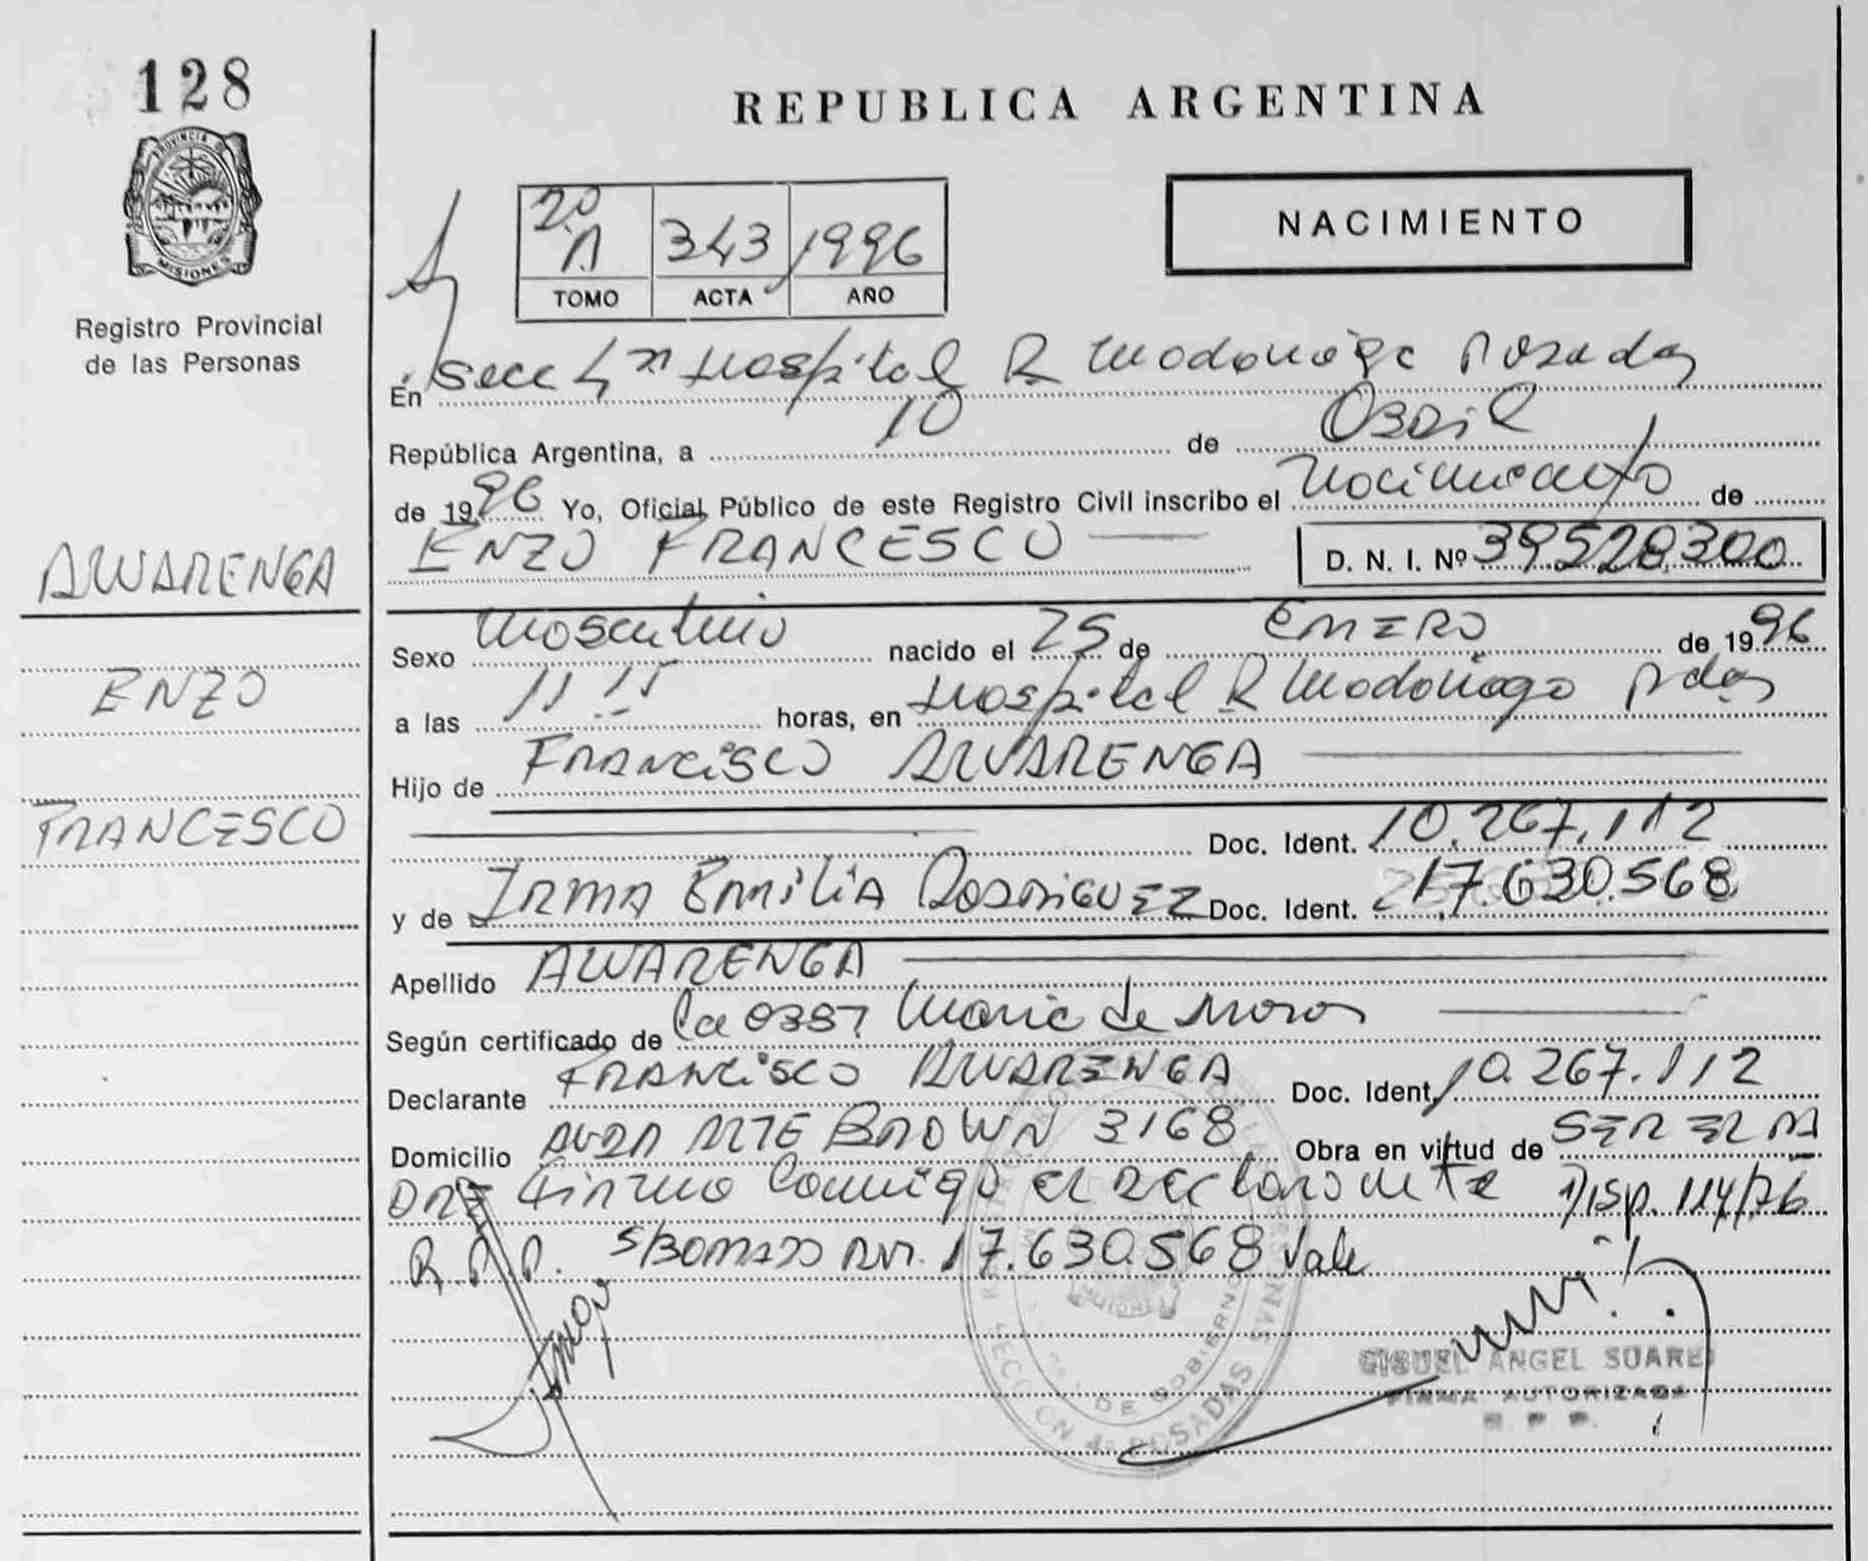 128
PROVINCIA DE
MISIONES
Registro Provincial
de las Personas
ALVARENGA
ENZO
FRANCESCO
REPUBLICA ARGENTINA
NACIMIENTO
2º A 343 1996
TOMO ACTA AÑO
En Secc 4ta Hospital R Madariaga Posadas
República Argentina, a 10 de Abril
de 1996 Yo, Oficial Público de este Registro Civil inscribo el Nacimiento de
ENZO FRANCESCO D. N. I. Nº 39528300
Sexo Masculino nacido el 25 de ENERO de 1996
a las 11 15 horas, en Hospital R Madariaga Pdas
Hijo de FRANCISCO ALVARENGA
Doc. Ident. 10.267.112
y de IRMA EMILIA RODRIGUEZ Doc. Ident. 17.630.568
Apellido ALVARENGA
Según certificado de la Obst Maria de
Declarante FRANCISCO ALVARENGA Doc. Ident. 10.267.112
Domicilio AVDA ALTE BROWN 3168 Obra en virtud de SER EL PA
DRE Firma Conmigo el Declarante Disp. 114/76
R.P.P. S/BORRADO DNI. 17.630.568 Vale
SECCION 4ª POSADAS MISIONES
DE GOBIERNO
ANGEL SUAREZ
FIRMA AUTORIZADA
R. P. P.